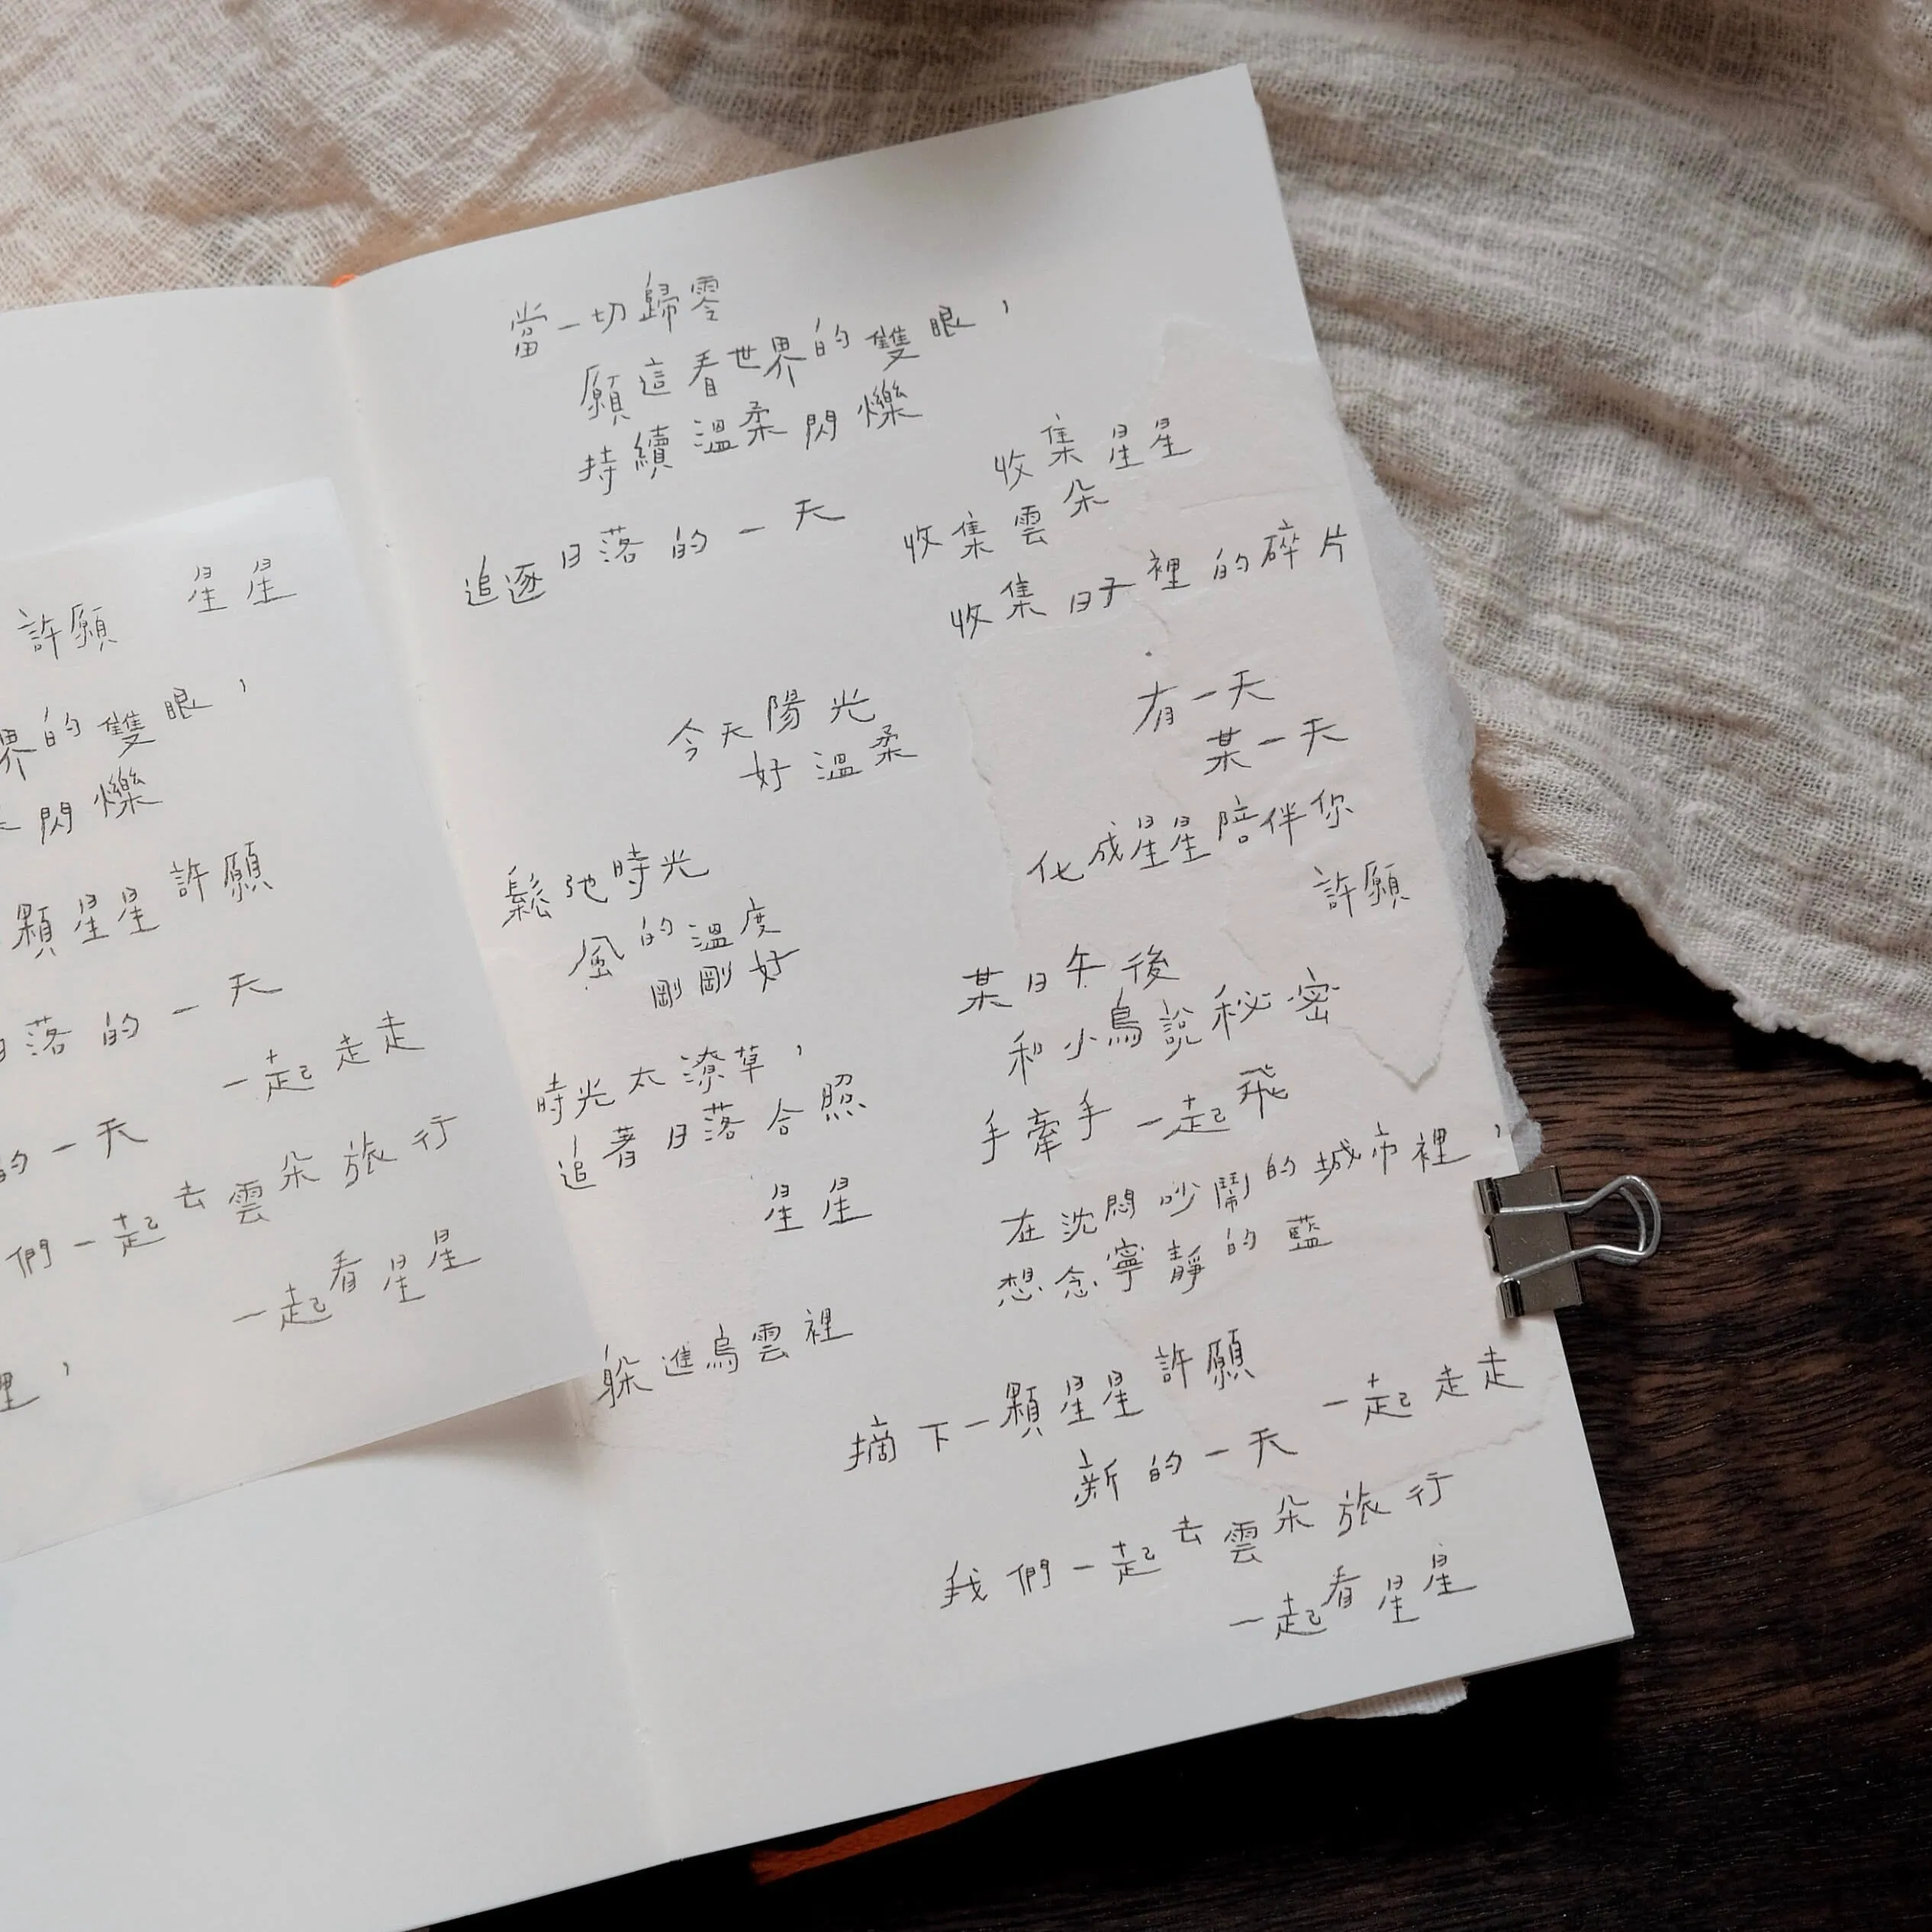 許願
星星
界的雙眼，
閃爍
顆星星許願
日落的一天
一起走走
的一天
們一起去雲朵旅行
一起看星星
裡，
當一切歸零
願這看世界的雙眼，
持續溫柔閃爍
追逐日落的一天
收集星星
收集雲朵
收集日子裡的碎片
今天陽光
好溫柔
有一天
某一天
化成星星陪伴你
許願
鬆弛時光
風的溫度
剛剛好
某日午後
和小鳥說秘密
手牽手一起飛
時光太潦草，
追著日落合照
星星
在沈悶吵鬧的城市裡，
想念寧靜的藍
躲進烏雲裡
摘下一顆星星許願
一起走走
新的一天
我們一起去雲朵旅行
一起看星星